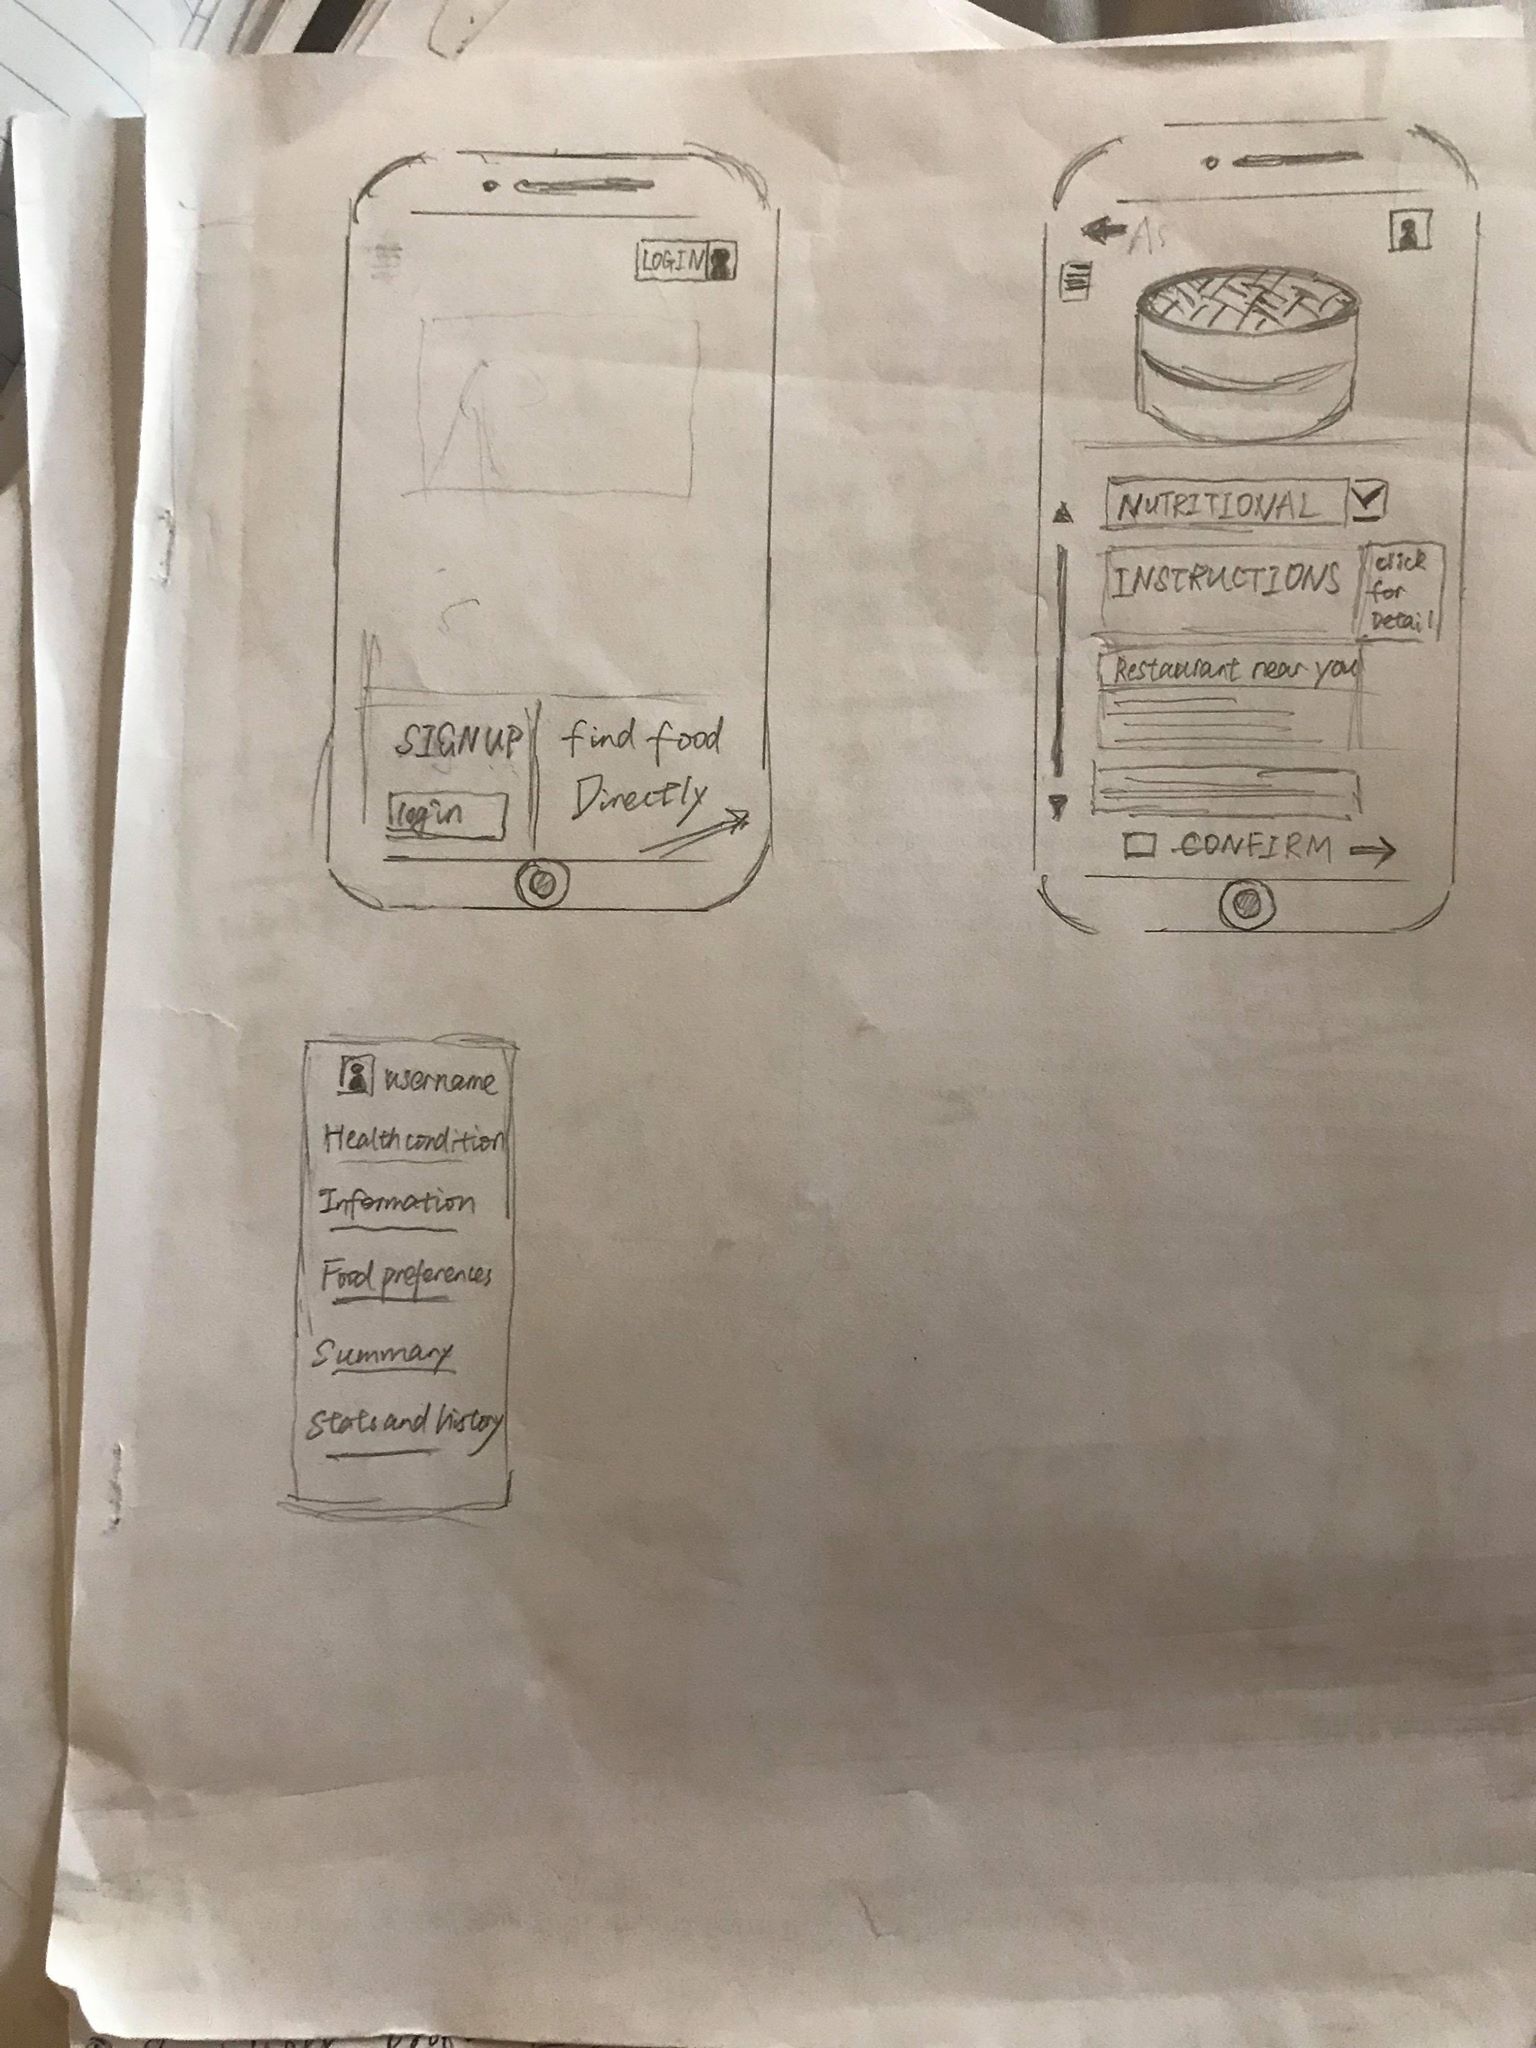 LOGIN
SIGNUP
login
find food
Directly
As
NUTRITIONAL
INSTRUCTIONS
click
for
Detail
Restaurant near you
CONFIRM
username
Health condition
Information
Food preferences
Summary
Stats and history